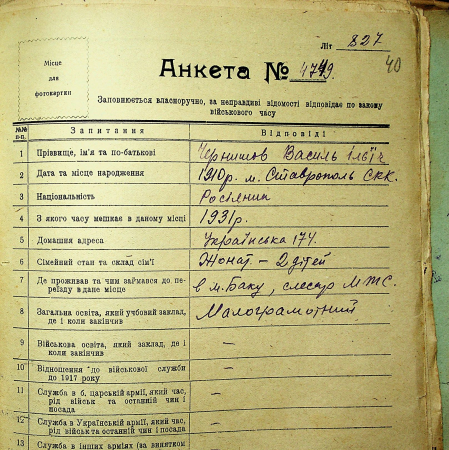 Літ 827
40
Місце
для
фотокартки
Анкета № 4749.
Заповнюється власноручно, за неправдиві відомості відповідає по закому
військового часу
№№ п-п. Запитання Відповіді
1 Прізвище, ім'я та по-батькові Чернишов Василь Ілліч
2 Дата та місце народження 1910р. м. Ставрополь СКК.
3 Національність Росіянин
4 З якого часу мешкає в даному місці 1931р.
5 Домашня адреса Українська 174.
6 Сімейний стан та склад сім'ї Жонат – 2 дітей
7 Де проживав та чим займався до пе-
реїзду в дане місце в м. Баку, слесар МЖС.
8 Загальна освіта, який учбовий заклад,
де і коли закінчив Малограмотний
9 Військова освіта, який заклад, де і
коли закінчив –
10 Відношення до військової служби
до 1917 року –
11 Служба в б. царській армії, який час,
рід військ та останній чин і
посада –
12 Служба в Українській армії, який час,
рід військ та останній чин і посада –
13 Служба в інших арміях (за винятком